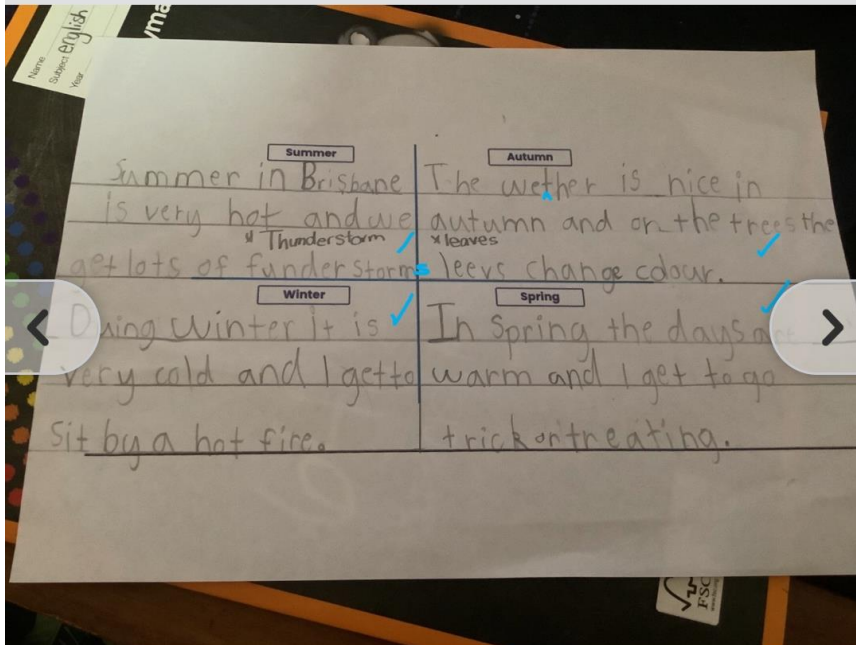 Name
Subject english
Year
Summer
Summer in Brisbane
is very hot and we
* Thunderstorm
get lots of funderstorms
Autumn
The wether is nice in
autumn and on the trees the
* leaves
leevs change colour.
Winter
winter it is
very cold and I get to
sit by a hot fire.
Spring
In Spring the days
warm and I get to go
trick or treating.
FSC